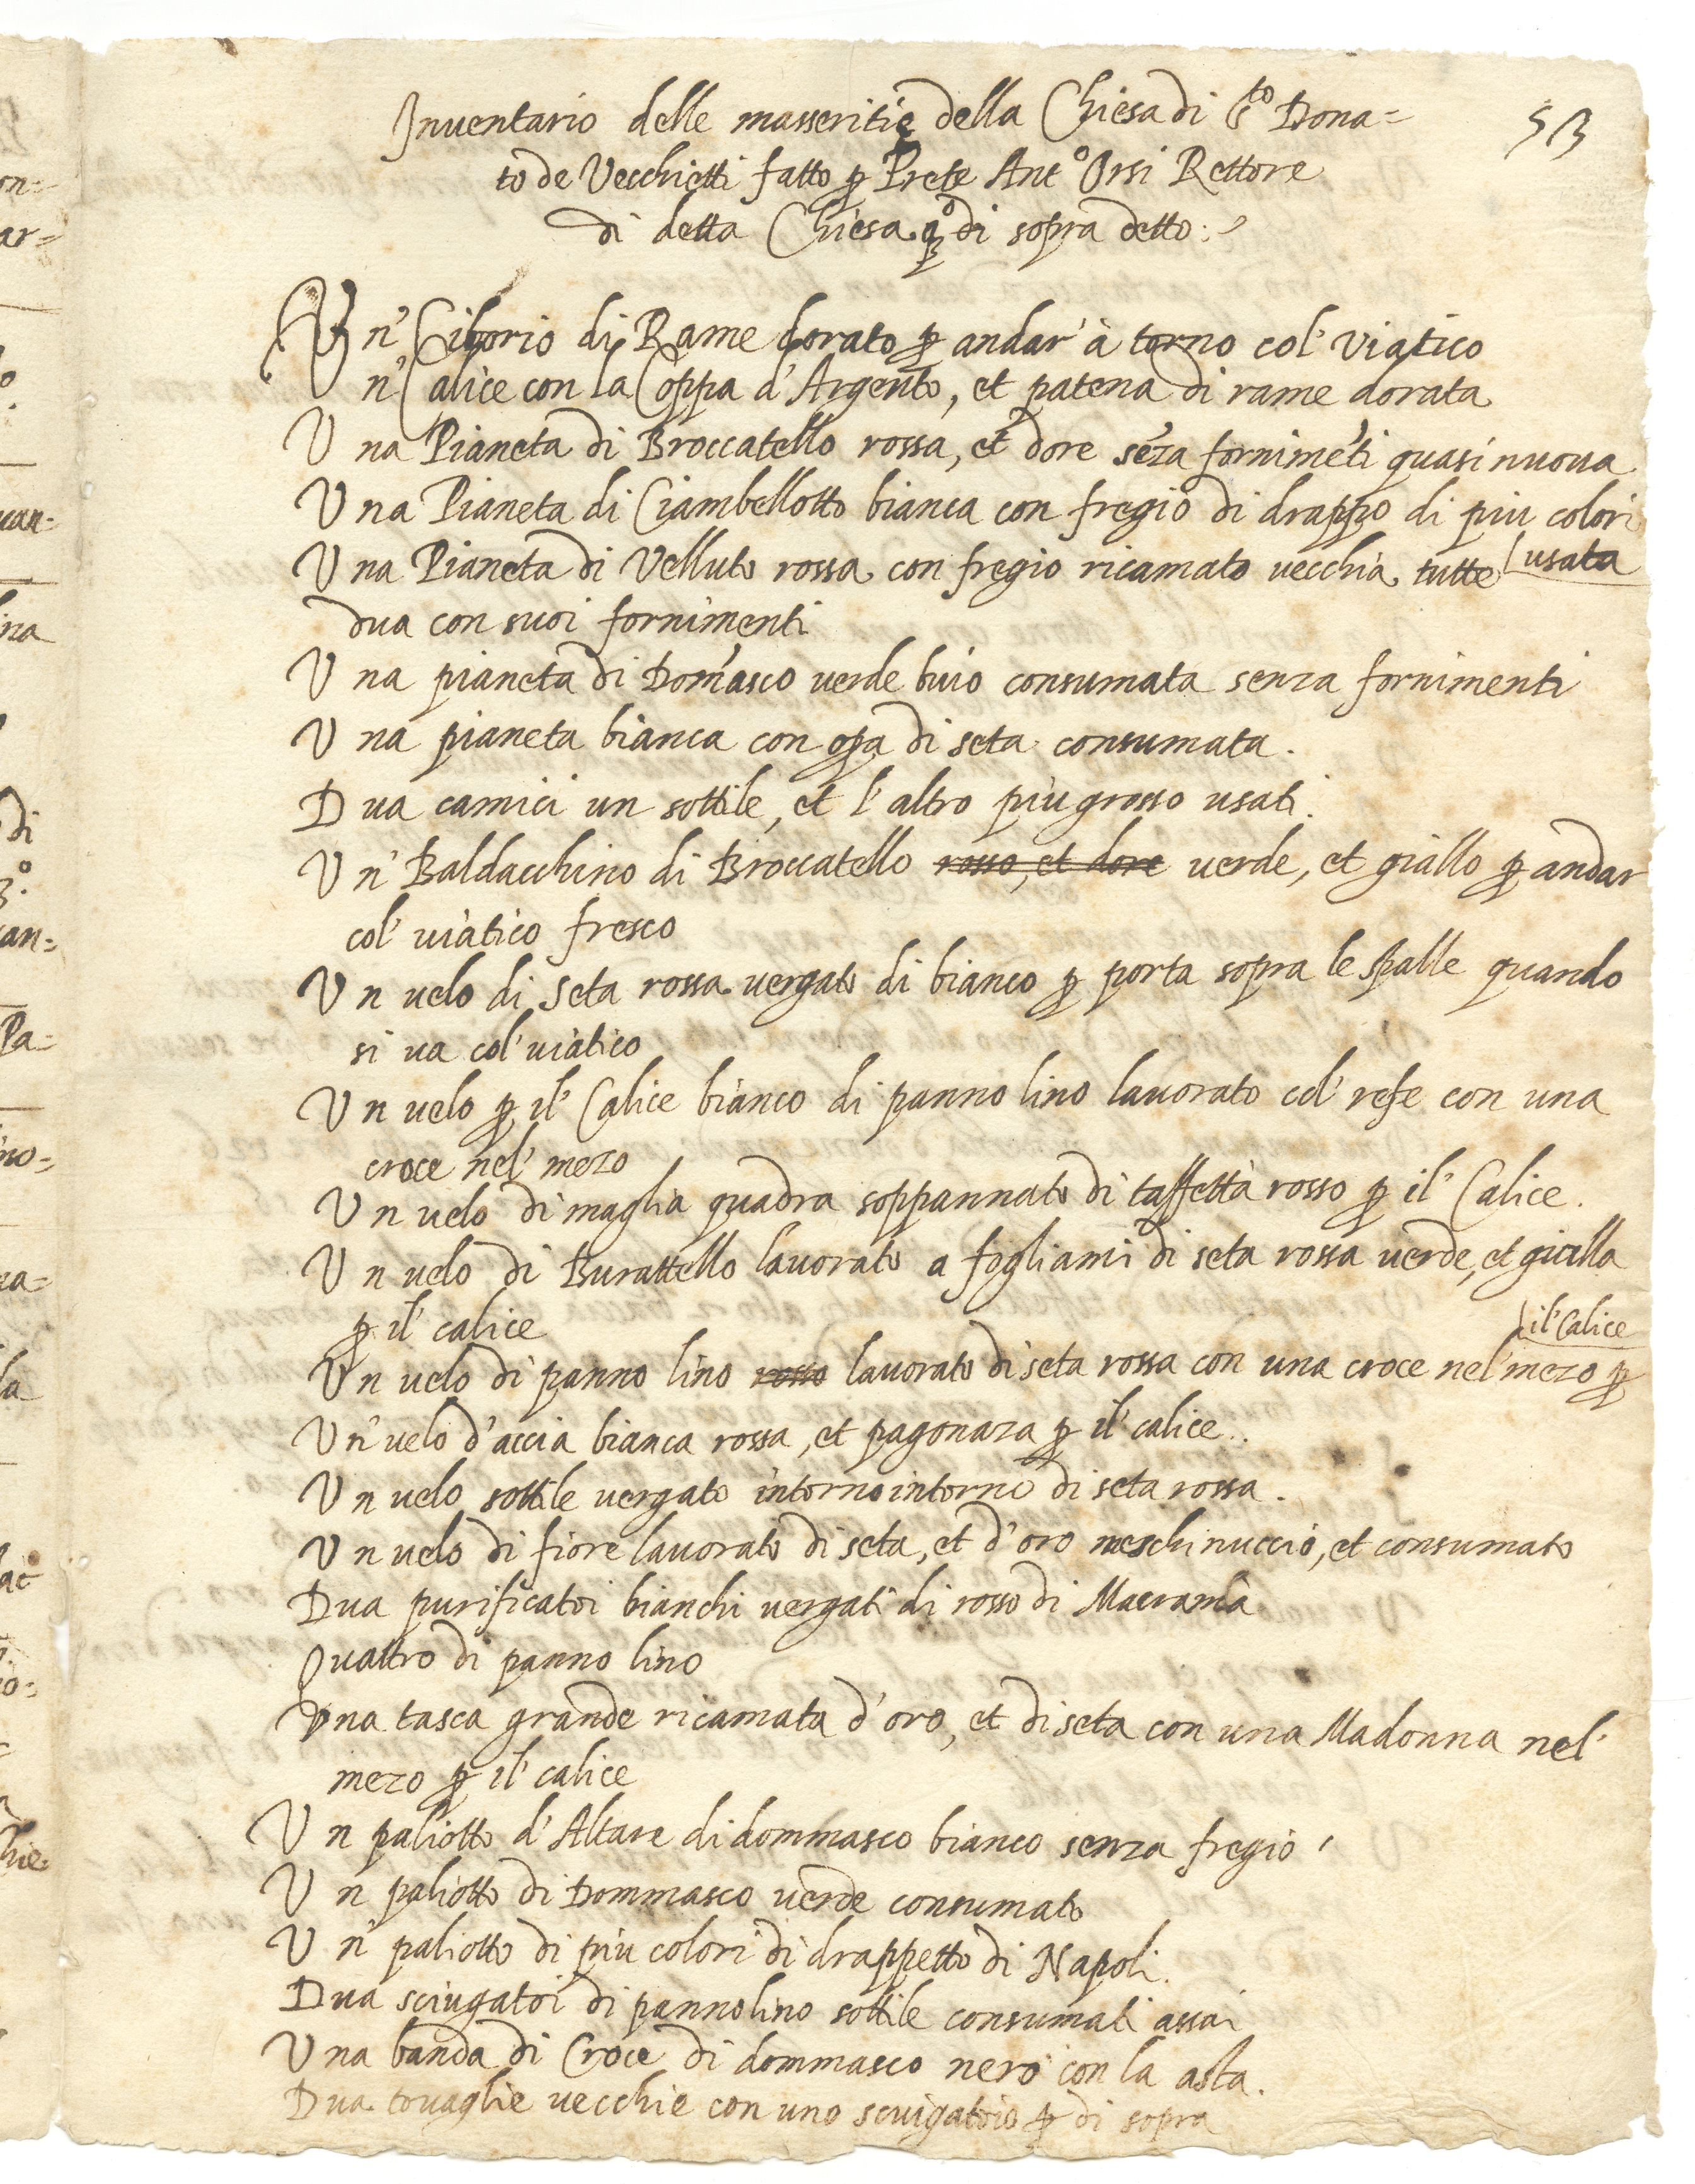 Inventario delle masseritie della Chiesa di S.to Dona=
53
to de Vecchietti fatto p Prete Ant.o Orsi Rettore
di detta Chiesa q.o di sopra detto:
Un' Ciborio di Rame dorato p andar' à torno col' viatico
Un' Calice con la Coppa d'Argento, et patena di rame dorata
Una Pianeta di Broccatello rossa, et dore sēza fornimēti quasi nuova
Una Pianeta di Ciambellotto bianca con fregio di drappo di piu colori
usata
Una Pianeta di Velluto rossa con fregio ricamato vecchia tutte
dua con suoi fornimenti
Una pianeta di Dom'asco verde buio consumata senza fornimenti
Una pianeta bianca con opa di seta consumata.
Dua camici un sottile, et l'altro più grosso usati.
Un' Baldacchino di Broccatello rosso, et dore verde, et giallo p andar
col' viatico fresco
Un velo di seta rossa vergato di bianco p porta sopra le spalle quando
si va col' viatico
Un velo p il' Calice bianco di panno lino lavorato col' refe con una
croce nel' mezo
Un velo di maglia quadra soppannato di taffettà rosso p il' Calice.
Un velo di Burattello lavorato a fogliami di seta rossa verde, et gialla
p il' calice
il' Calice
Un velo di panno lino rosso lavorato di seta rossa con una croce nel' mezo p
Un' velo d'accia bianca rossa, et pagonaza p il' calice..
Un velo sottile vergato intorno intorno di seta rossa.
Un velo di fiore lavorato di seta, et d'oro meschinuccio, et consumato
Dua purificatoi bianchi vergati di rosso di Macramà
Quattro di panno lino
Una tasca grande ricamata d'oro, et di seta con una Madonna nel'
mezo p il' calice
Un paliotto d'Altare di dommasco bianco senza fregio
Un paliotto di Dommasco verde consumato
Un' paliotto di più colori di drappetto di Napoli.
Dua sciugatoi di pannolino sottile consumati assai
Una banda di Croce di dommasco nero con la asta.
Dua tovaglie vecchie con uno sciugatoio p di sopra